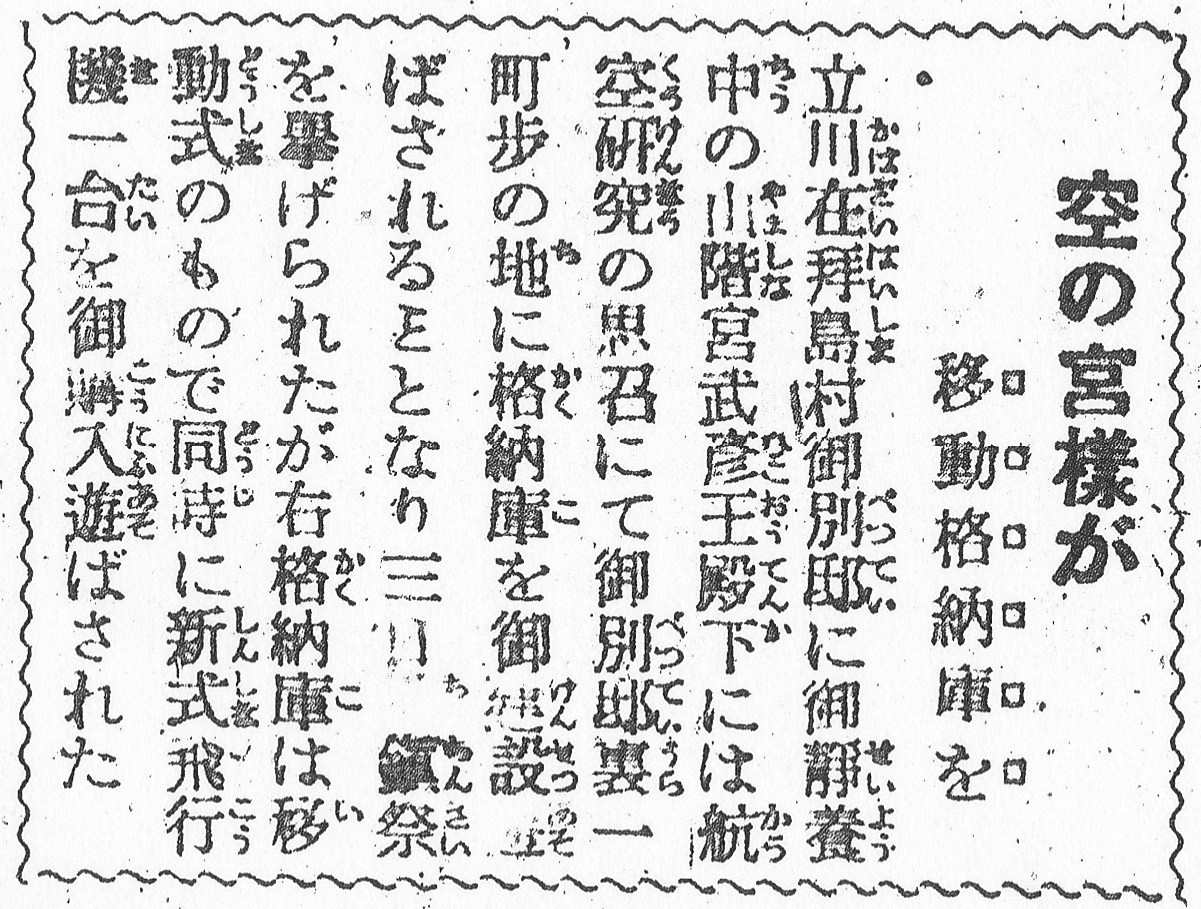 空の宮樣が
移動格納庫を
立川在拜島村御別邸に御靜養
中の山階宮武彦王殿下には航
空研究の思召にて御別邸裏一
町步の地に格納庫を御建設遊
ばされることとなり三日 鎭祭
を擧げられたが右格納庫は移
動式のもので同時に新式飛行
機一台を御購入遊ばされた